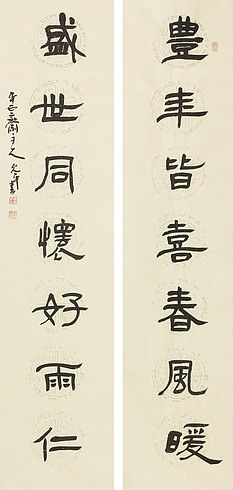 豊年皆喜春風暖
盛世同懷好雨仁